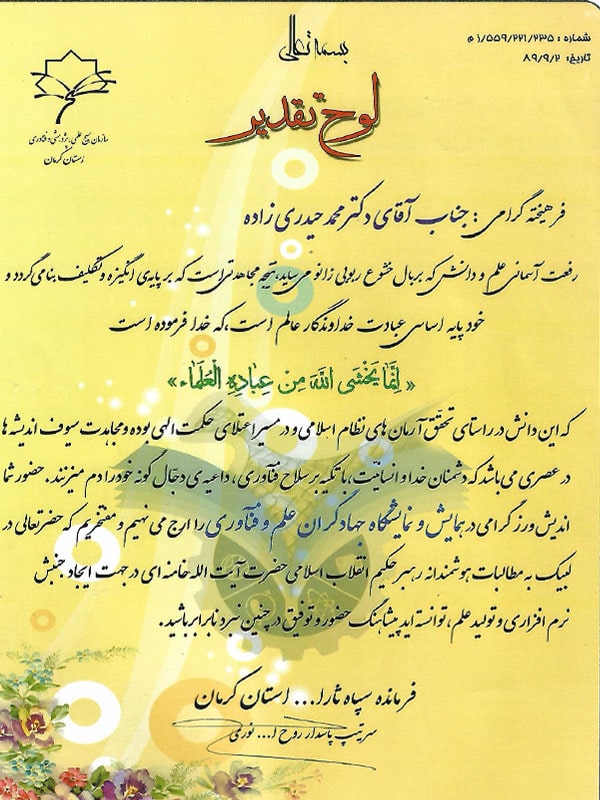 بسمه تعالی
شماره : ۵۵۹/۲۲۱/۲۳۵/ز م
تاریخ: ۸۹/۹/۲
لوح تقدیر
سازمان بسیج علمی، پژوهشی و فناوری
استان کرمان
فرهیخته گرامی : جناب آقای دکتر محمد حیدری زاده
رفعت آسمانی علم و دانش که بر بال خشوع ربوبی زانو می ساید، نتیجه مجاهدتی است که بر پایه ی انگیزه و تکلیف بنا می گردد و
خود پایه اساسی عبادت خداوندگار عالم است، که خدا فرموده است
« اِنَّمَا یَخْشَی اللهَ مِنْ عِبَادِهِ الْعُلَمَاء »
که این دانش در راستای تحقق آرمان های نظام اسلامی و در مسیر اعتلای حکمت الهی بوده و مجاهدت سیوف اندیشه ها
در عصری می باشد که دشمنان خدا و انسانیت، با تکیه بر سلاح فنآوری، داعیه ی دجّال گونه خود را دم میزنند. حضور شما
اندیش ورز گرامی در همایش و نمایشگاه جهادگران علم و فنآوری را ارج می نهیم و مفتخریم که حضرتعالی در
لبیک به مطالبات هوشمندانه رهبر حکیم انقلاب اسلامی حضرت آیت الله خامنه ای در جهت ایجاد جنبش
نرم افزاری و تولید علم، توانسته اید پیشاهنگ حضور و توفیق در چنین نبرد نابرابر باشید.
فرمانده سپاه ثارا... استان کرمان
سرتیپ پاسدار روح ا... نوری